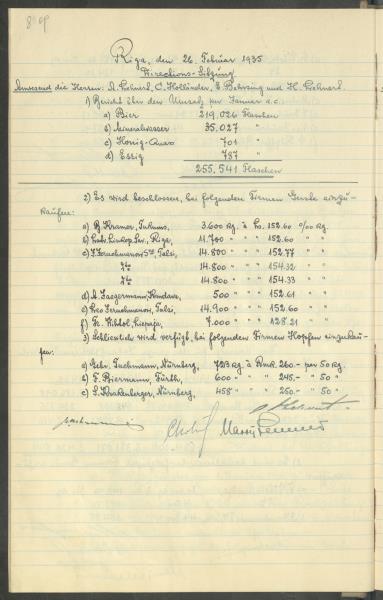 Riga, den 26. Februar 1935
Directions-Sitzung
Anwesend die Herren: C. Holländer, und H.
1) Bericht über den Umsatz pur Januar a.c.
a) Bier 219.026 Flaschen
b) Mineralwasser 35.027 "
c) Honig-Quas 701 "
d) Essig 787 "
255.541 Flaschen
2) Es wird beschlossen, bei folgenden Firmen Gerste einzu-
kaufen:
a) Kramer, Tukums, 3.600 kg. à Ls. 152.60 %00 kg.
b) Riga, 11.700 " " " 152.60 " "
c) Talsi, 14.800 " " " 152.77 " "
14.800 " " " 154.32 " "
14.800 " " " 154.33 " "
d) A. Jaegermann, Kandava, 500 " " " 152.61 " "
e) Talsi, 14.900 " " " 152.60 " "
f) Fr. Liepaja, 7.000 " " " 128.21 " "
3) Schliesslich wird verfügt, bei folgenden Firmen Hopfen einzukau-
fen:
a) Gebr. Tuchmann, Nürnberg, à Rmk. 260.- per 50 kg.
b) F. Biermann, Fürth, 600 " " " 245.- " 50 "
c) S. Krakenberger, Nürnberg, 458 " " " 250.- " 50 "